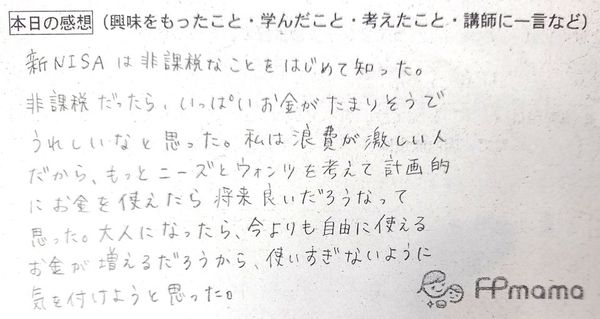 本日の感想（興味をもったこと・学んだこと・考えたこと・講師に一言など）
新NISAは非課税なことをはじめて知った。
非課税だったら、いっぱいお金がたまりそうで
うれしいなと思った。私は浪費が激しい人
だから、もっとニーズとウォンツを考えて計画的
にお金を使えたら将来良いだろうなって
思った。大人になったら、今よりも自由に使える
お金が増えるだろうから、使いすぎないように
気を付けようと思った。
FPmama